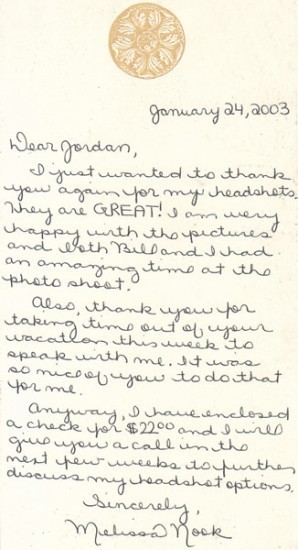 January 24, 2003
Dear Jordan,
I just wanted to thank
you again for my headshots.
They are GREAT! I am very
happy with the pictures
and both Bill and I had
an amazing time at the
photo shoot.
Also, thank you for
taking time out of your
vacation this week to
speak with me. It was
so nice of you to do that
for me.
Anyway, I have enclosed
a check for $22.00 and I will
give you a call in the
next few weeks to further
discuss my headshot options.
Sincerely,
Melissa Nook